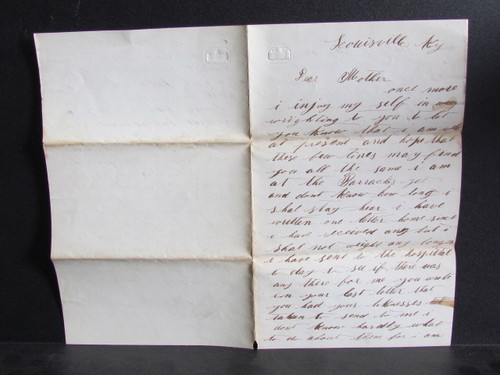 Louisville Ky
Dear Mother
once more
i injoy my self in
wrighting to you to let
you know that i am
at present and hope that
these few lines may find
you all the same i am
at the Barracks yet
and dont know how long i
shal stay hear i have
written one letter home since
i have received any but i
shal not wright any longer
i have sent to the hospital
to day to see if there was
any there for me you wrote
in your last letter that
you had your likenesses
taken to send to me i
dont know hardly what
to do about them for i am